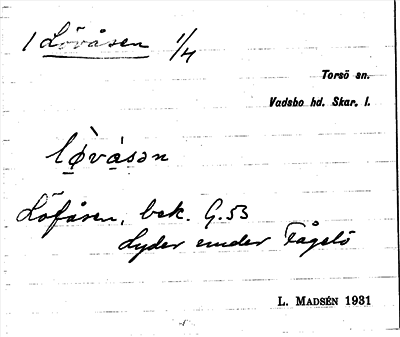 1 Lövåsen 1/4
Torsö sn.
Vadsbo hd. Skar. l.
lø̀vàsən
Löfåsen, bek. G. 53
Lyder under Fågelö
L. MADSÉN 1931